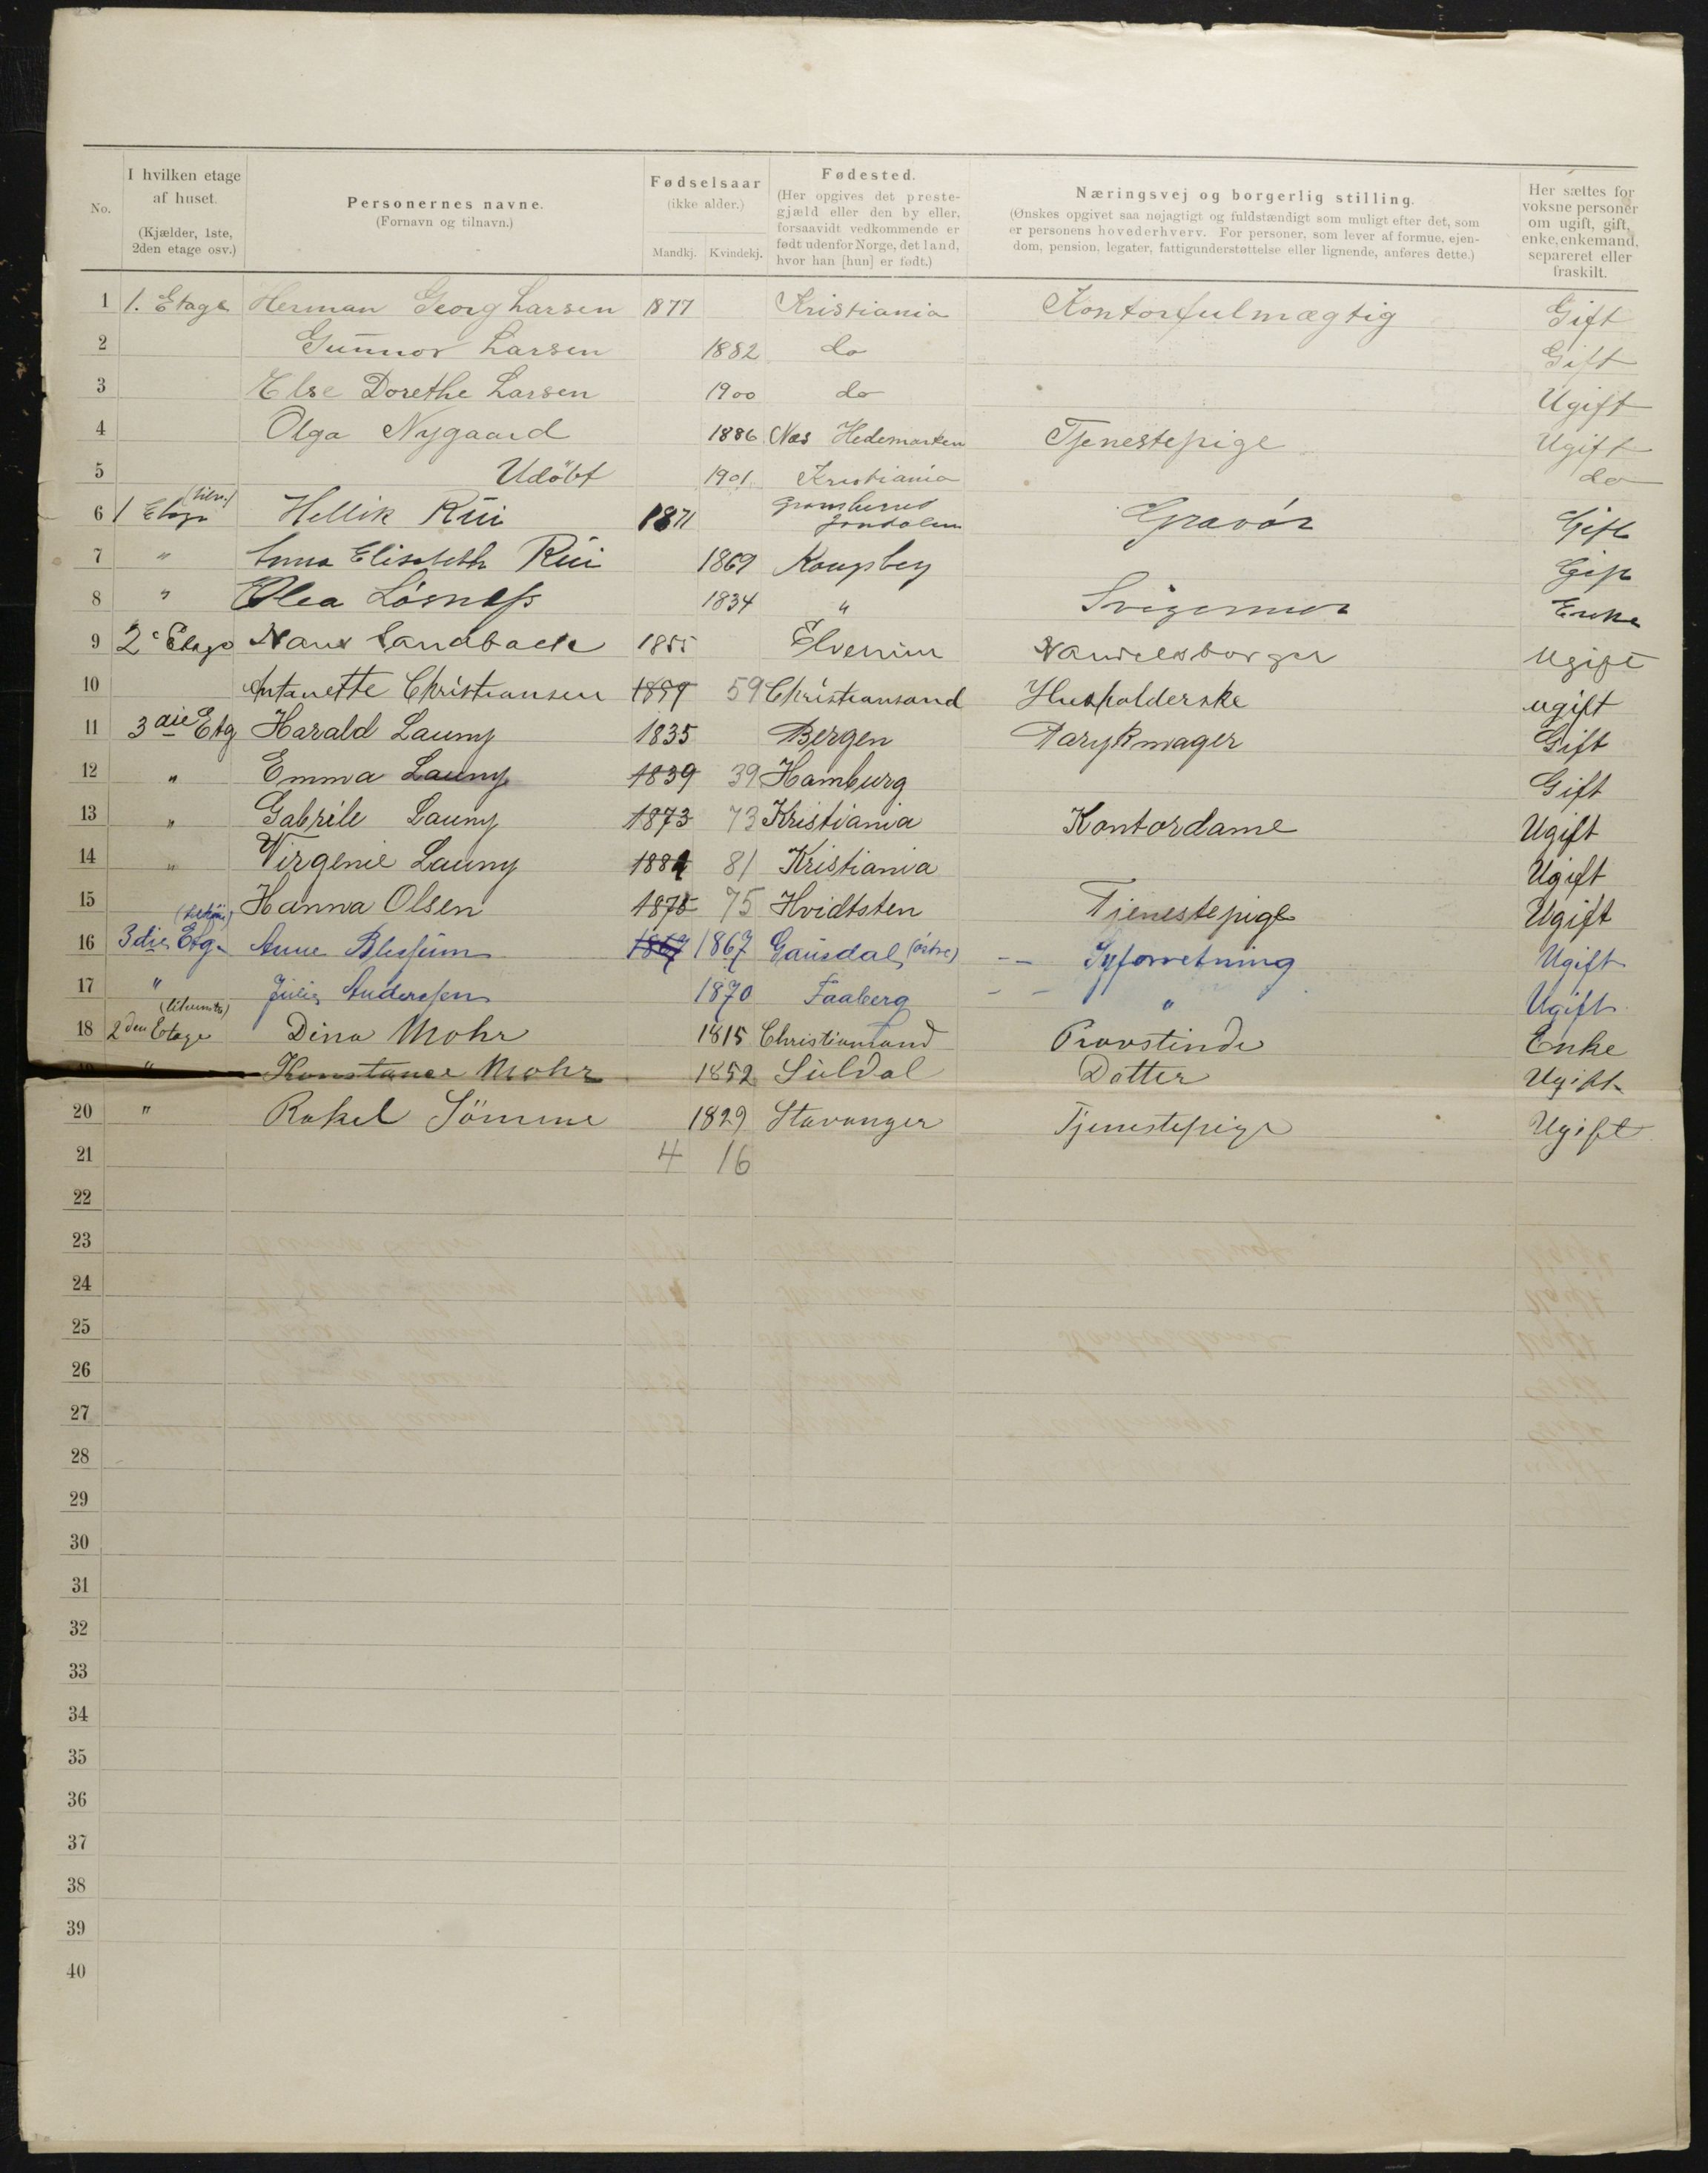 No.
I hvilken etage af huset. (Kjælder, 1ste, 2den etage osv.)
Personernes navne. (Fornavn og tilnavn.)
Fødselsaar (ikke alder.) Mandkj. Kvindekj.
Fødested. (Her opgives det prestegjæld eller den by eller, forsaavidt vedkommende er født udenfor Norge, det land, hvor han [hun] er født.)
Næringsvej og borgerlig stilling. (Ønskes opgivet saa nøjagtigt og fuldstændigt som muligt efter det, som er personens hovederhverv. For personer, som lever af formue, ejendom, pension, legater, fattigunderstøttelse eller lignende, anføres dette.)
Her sættes for voksne personer om ugift, gift, enke, enkemand, separeret eller fraskilt.
1 1. Etage Herman Georg Larsen 1877 Kristiania Kontorfulmægtig Gift
2 Gunnor Larsen 1882 do Gift
3 Else Dorethe Larsen 1900 do Ugift
4 Olga Nygaard 1886 Nes Hedemarken Tjenestepige Ugift
5 Udöbt 1901 Kristiania do
6 1 Etage Hellik Rui 1871 Gravör Gift
7 " Anna Elisabeth Rui 1869 Kongsberg Gift
8 " Olea Lösness 1834 " Svigermor Enke
9 2 Etage Hans Sandback 1855 Elverum Handelsborger ugift
10 Antonette Christiansen 1859 59 Christiansand Husholderske ugift
11 3die Etg Harald Launy 1835 Bergen Parykmager Gift
12 " Emma Launy 1839 39 Hamburg Gift
13 " Gabrile Launy 1873 73 Kristiania Kontordame Ugift
14 " Virgenie Launy 1881 81 Kristiania Ugift
15 Hanna Olsen 1875 75 Hvidtsten Tjenestepige Ugift
16 3die Etg. Anne Blessum 1867 1867 Gausdal (östre) -- Syforretning Ugift
17 " Julie Anderssen 1870 Faaberg -- " Ugift
18 2den Etage Dina Mohr 1815 Christiansand Provstinde Enke
" Konstance Mohr 1852 Suldal Datter Ugift
20 " Rakel Sömme 1829 Stavanger Tjenestepige Ugift
21 4 16
22
23
24
25
26
27
28
29
30
31
32
33
34
35
36
37
38
39
40